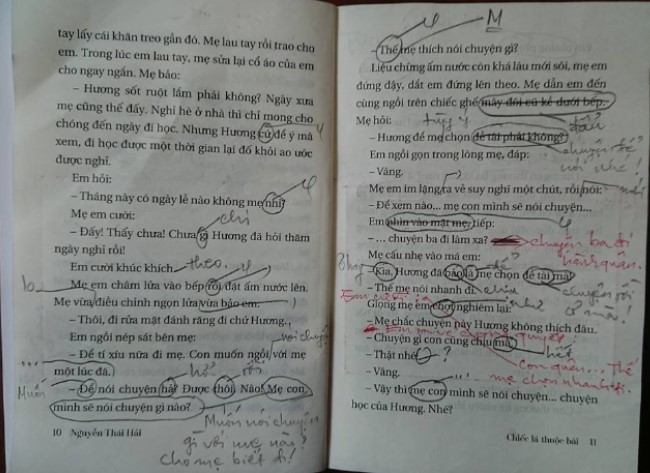 tay lấy cái khăn treo gần đó. Mẹ lau tay rồi trao cho
em. Trong lúc em lau tay, mẹ sửa lại cổ áo của em
cho ngay ngắn. Mẹ bảo:
– Hương sốt ruột lắm phải không? Ngày xưa
mẹ cũng thế đấy. Nghỉ hè ở nhà thì chỉ mong cho
chóng đến ngày đi học. Nhưng Hương cứ để ý mà
xem, đi học được một thời gian lại đố khỏi ao ước
được nghỉ.
Em hỏi:
– Tháng này có ngày lễ nào không mẹ nhỉ?
Mẹ em cười:
chi
– Đấy! Thấy chưa! Chưa gì Hương đã hỏi thăm
ngày nghỉ rồi!
Em cười khúc khích. theo.
Mẹ em châm lửa vào bếp rồi đặt ấm nước lên.
Mẹ vừa điều chỉnh ngọn lửa vừa bảo em:
– Thôi, đi rửa mặt đánh răng đi chứ Hương.
Em ngồi nép sát bên mẹ:
nói chuyện
– Để tí xíu nữa đi mẹ. Con muốn ngồi với mẹ
một lúc đã.
Muốn
– Để nói chuyện hả? Được thôi. Nào! Mẹ con
mình sẽ nói chuyện gì nào?
Muốn nói chuyện
gì với mẹ nào?
cho mẹ biết đi!
10 Nguyễn Thái Hải
M
– Thế mẹ thích nói chuyện gì?
Liệu chừng ấm nước còn khá lâu mới sôi, mẹ em
đứng dậy, dắt em đứng lên theo. Mẹ dẫn em đến
cùng ngồi trên chiếc ghế mây đôi cũ kê dưới bếp.
Mẹ hỏi:
tùy ý
– Hương để mẹ chọn đề tài phải không?
Em ngồi gọn trong lòng mẹ, đáp:
– Vâng.
Mẹ em im lặng ra vẻ suy nghĩ một chút, rồi nói:
– Để xem nào... mẹ con mình sẽ nói chuyện...
Em nhìn vào mặt mẹ, tiếp:
– ... chuyện ba đi làm xa? chuyện ba đi
hành quân.
Mẹ cấu nhẹ vào má em:
– Kìa, Hương đã bảo là mẹ chọn đề tài mà!
– Thế mẹ nói nhanh đi.
Giọng mẹ em chợt nghiêm lại:
– Mẹ chắc chuyện này Hương không thích đâu.
– Chuyện gì con cũng chịu mà! hết
– Thật nhé?
– Vâng.
mẹ chọn nhanh đi.
– Vậy thì mẹ con mình sẽ nói chuyện... chuyện
học của Hương. Nhé?
Chiếc lá thuộc bài 11